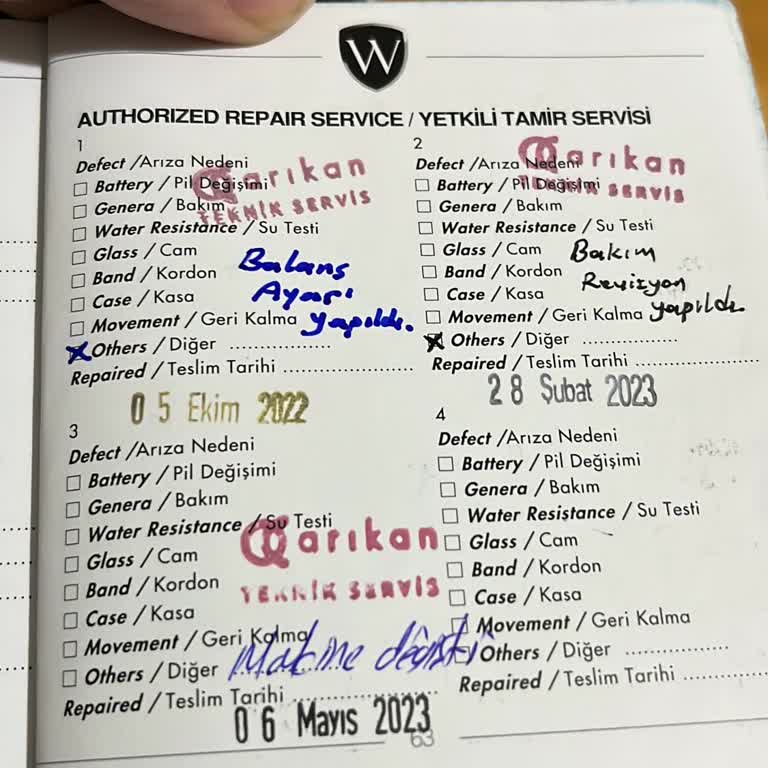 W
AUTHORIZED REPAIR SERVICE / YETKİLİ TAMİR SERVİSİ
1
Defect /Arıza Nedeni
arıkan
Battery / Pil Değişimi
TEKNİK SERVİS
Genera / Bakım
Water Resistance / Su Testi
Glass / Cam
Balans
Band / Kordon
Ayarı
Case / Kasa
Movement / Geri Kalma
yapıldı.
Others / Diğer ..................
Repaired / Teslim Tarihi ......................
05 Ekim 2022
2
Defect /Arıza Nedeni
arıkan
Battery / Pil Değişimi
TEKNİK SERVİS
Genera / Bakım
Water Resistance / Su Testi
Glass / Cam
Bakım
Band / Kordon
Revizyon
Case / Kasa
Movement / Geri Kalma
yapıldı.
Others / Diğer .................
Repaired / Teslim Tarihi ......................
28 Şubat 2023
3
Defect /Arıza Nedeni
Battery / Pil Değişimi
Genera / Bakım
Water Resistance / Su Testi
arıkan
Glass / Cam
TEKNİK SERVİS
Band / Kordon
Case / Kasa
Movement / Geri Kalma
Others / Diğer
Makine değişti
Repaired / Teslim Tarihi ......................
06 Mayıs 2023
4
Defect /Arıza Nedeni
Battery / Pil Değişimi
Genera / Bakım
Water Resistance / Su Testi
Glass / Cam
Band / Kordon
Case / Kasa
Movement / Geri Kalma
Others / Diğer ..................
Repaired / Teslim Tarihi ......................
63